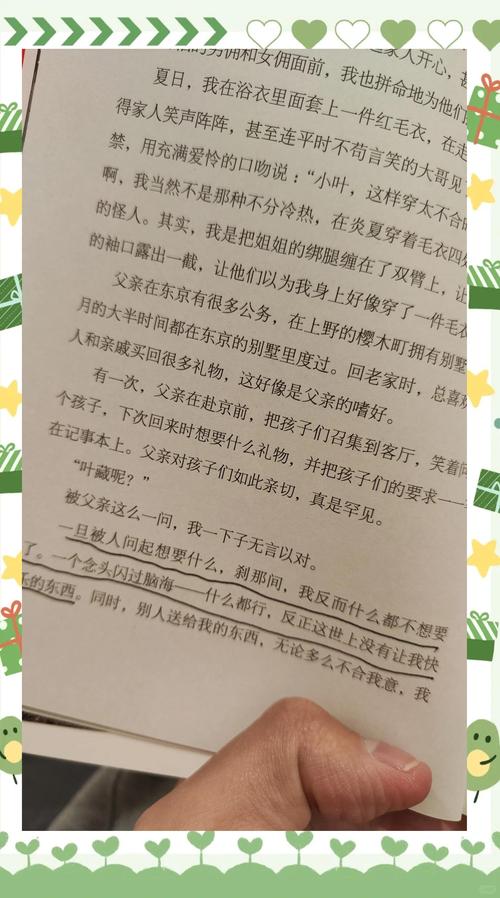 的男佣和女佣面前，我也拼命地为他们
夏日，我在浴衣里面套上一件红毛衣，在走
得家人笑声阵阵，甚至连平时不苟言笑的大哥见
禁，用充满爱怜的口吻说：“小叶，这样穿太不合时
啊，我当然不是那种不分冷热，在炎夏穿着毛衣四处
的怪人。其实，我是把姐姐的绑腿缠在了双臂上，让
的袖口露出一截，让他们以为我身上好像穿了一件毛衣
父亲在东京有很多公务，在上野的樱木町拥有别墅
月的大半时间都在东京的别墅里度过。回老家时，总喜欢
人和亲戚买回很多礼物，这好像是父亲的嗜好。
有一次，父亲在赴京前，把孩子们召集到客厅，笑着问
个孩子，下次回来时想要什么礼物，并把孩子们的要求——
在记事本上。父亲对孩子们如此亲切，真是罕见。
“叶藏呢？”
被父亲这么一问，我一下子无言以对。
一旦被人问起想要什么，刹那间，我反而什么都不想要
了。一个念头闪过脑海——什么都行，反正这世上没有让我快
乐的东西。同时，别人送给我的东西，无论多么不合我意，我